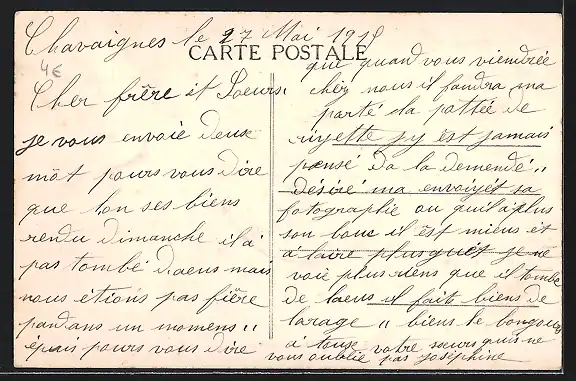 Chavaignes le 27 Mai 1919
CARTE POSTALE
4€
Cher frêre et Soeurs.
je vous envoie deux
môt pours vous dire
que l'on ses biens
rendu dimanche il à
pas tombé daeus mais
nous étions pas fiêre
pandans un momens "
épais pours vous dire
que quand vous viendrée
chéz nous il faudra ma
porté la pattée de
j y est jamais
pensé Da la demendé "
désiré ma envoiyét sa
fotographie ou qu'il à plus
son bouc il est miens et
à laire plus guét je ne
voie plus riens que il tombe
de laeus il faits biens de
larage " biens le bonjours
à tous votre soeurs qui ne
vous oublie pas Joséphine